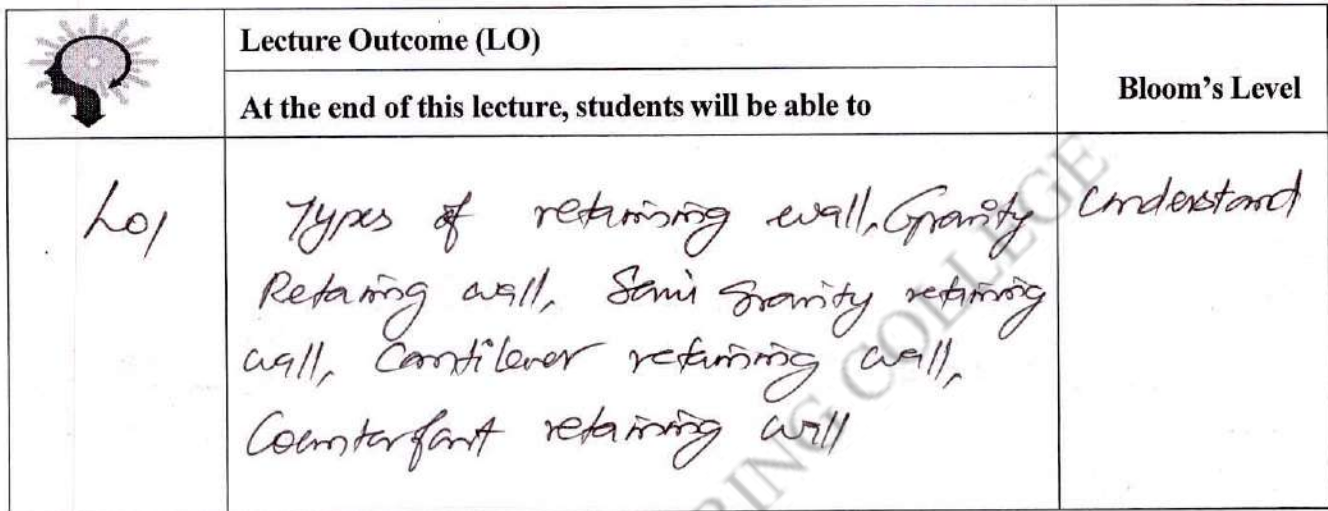 Lecture Outcome (LO)
At the end of this lecture, students will be able to
Bloom's Level
LO1
Types of retaining wall, Gravity
Retaining wall, Semi Gravity retaining
wall, Cantilever retaining wall,
Counterfort retaining wall
Understand
RING COLLEGE